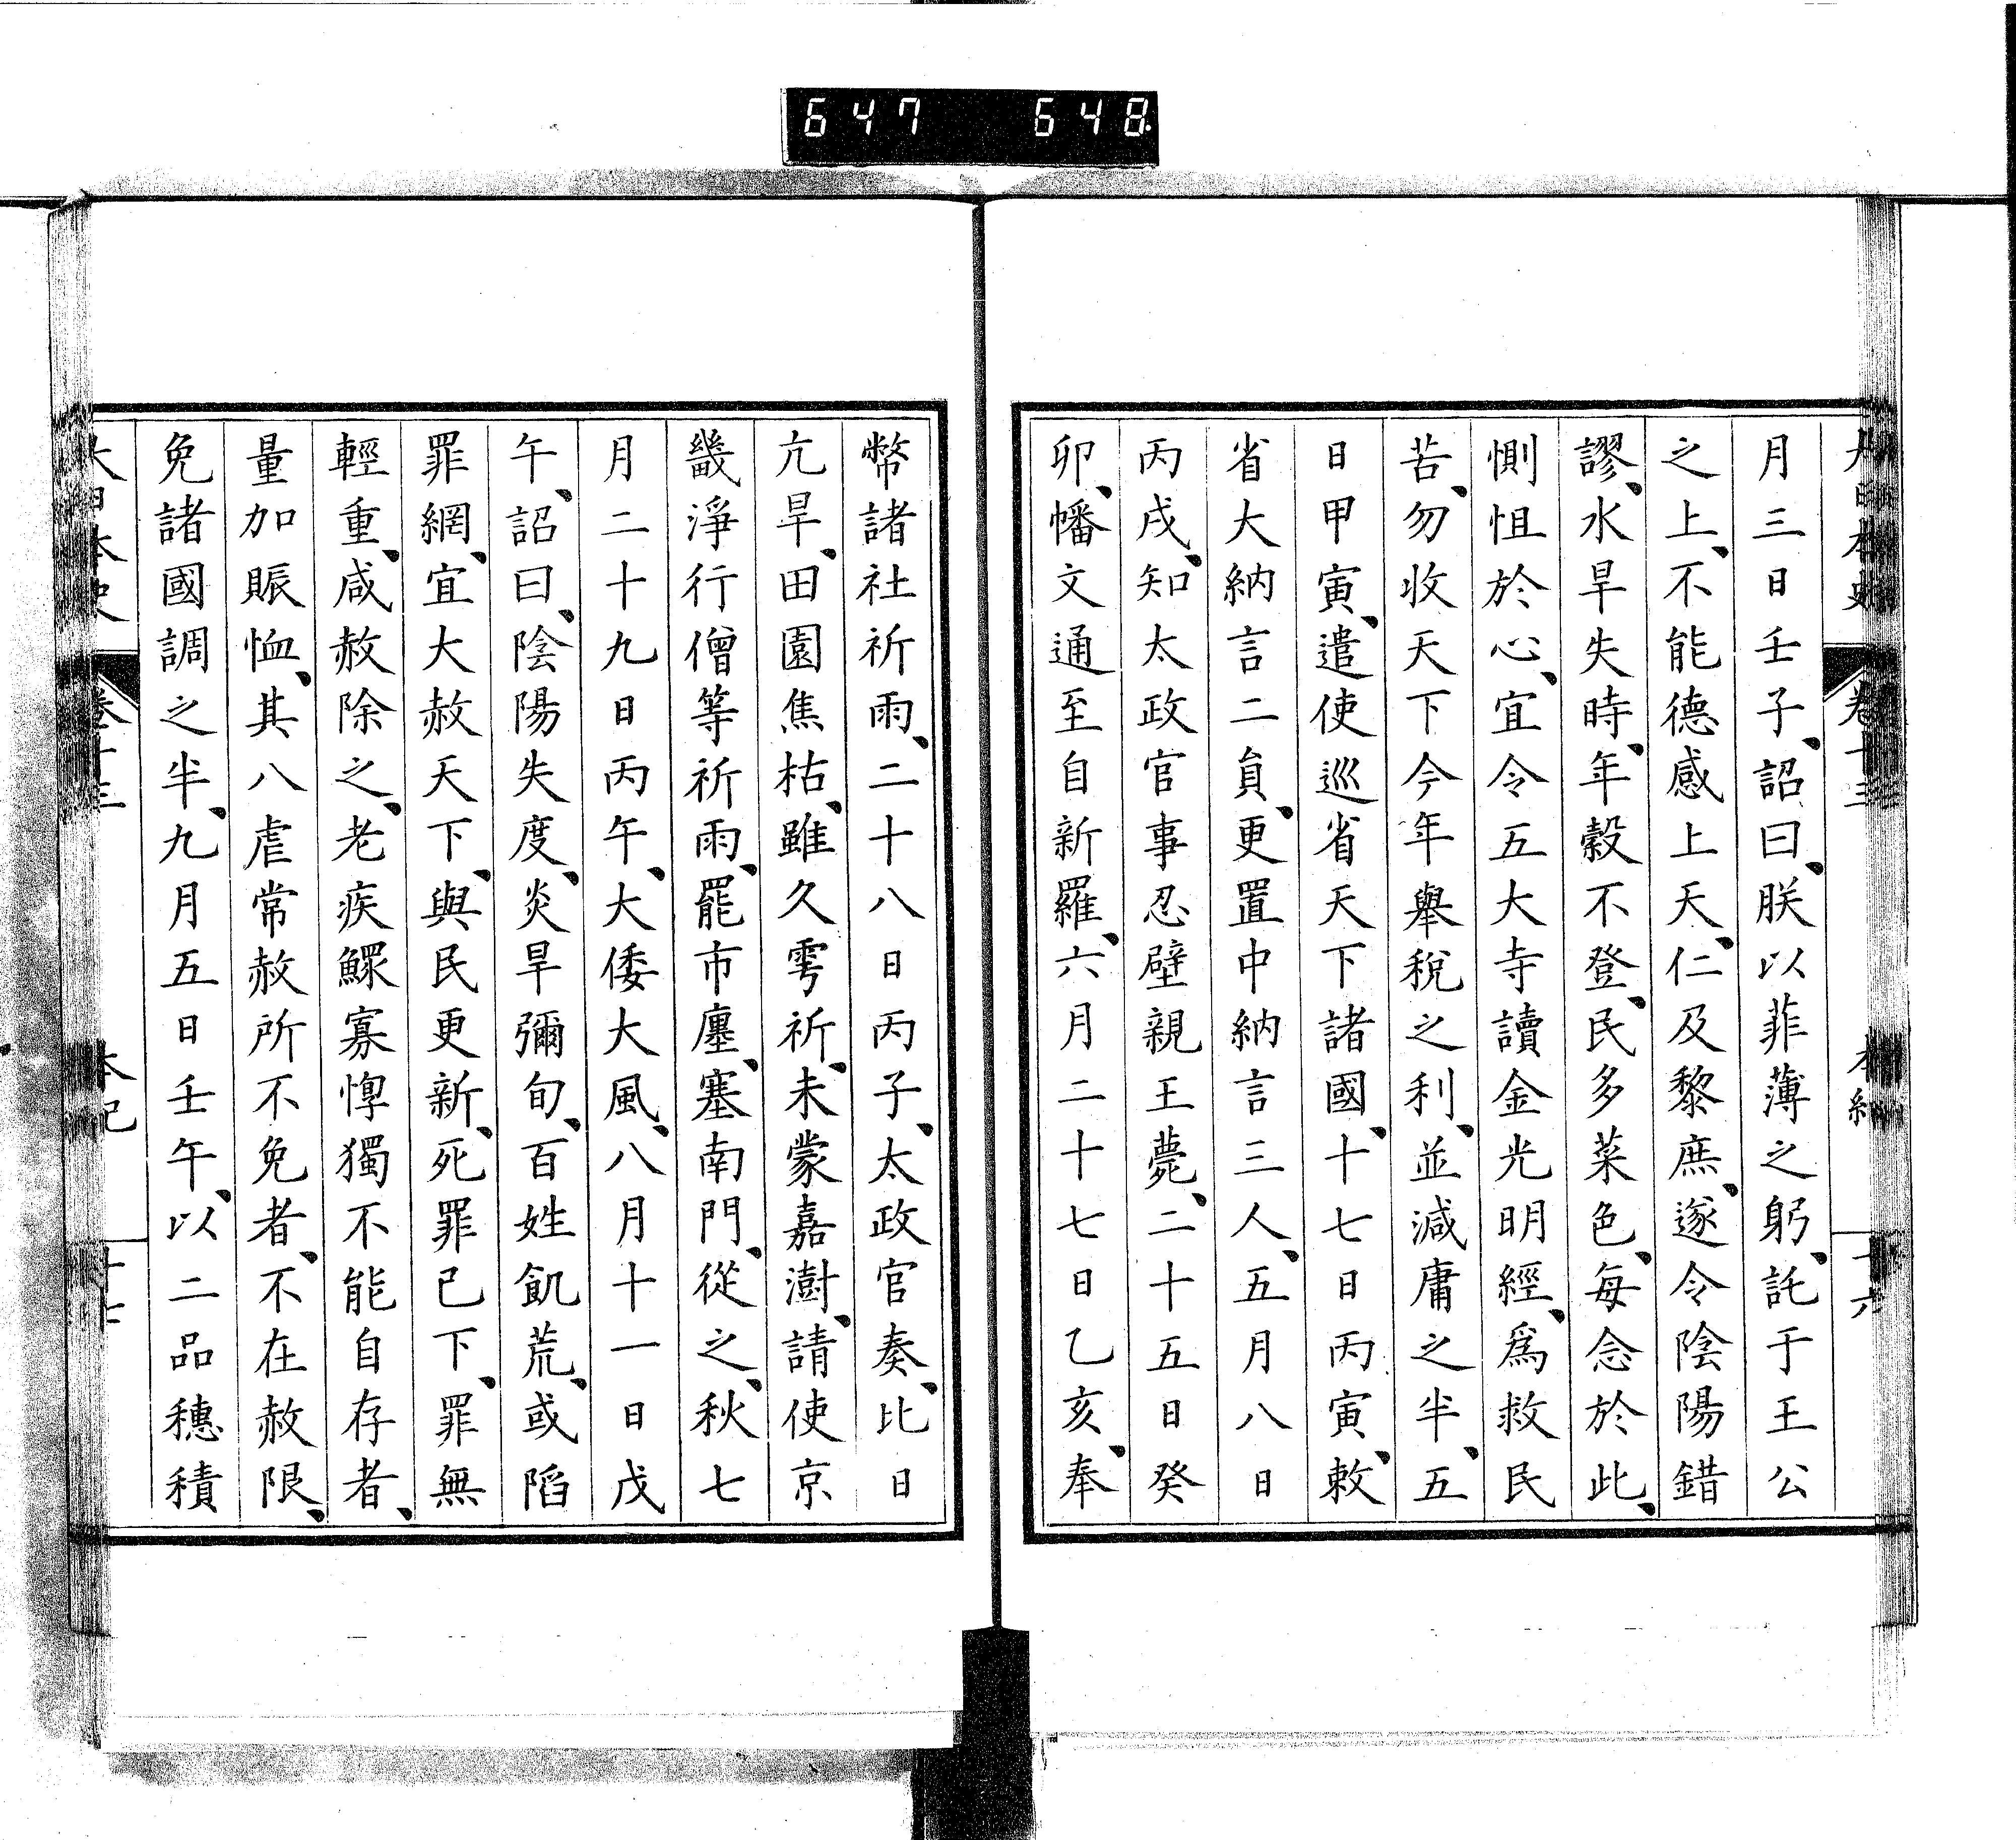 647 648
大日本史 卷十三 本紀 十六
月三日壬子、詔曰、朕以菲薄之躬、託于王公
之上、不能德感上天、仁及黎庶、遂令陰陽錯
謬、水旱失時、年穀不登、民多菜色、每念於此、
惻怛於心、宜令五大寺讀金光明經、爲救民
苦、勿收天下今年舉稅之利、並減庸之半、五
日甲寅、遣使巡省天下諸國、十七日丙寅、敕
省大納言二員、更置中納言三人、五月八日
丙戌、知太政官事忍壁親王薨、二十五日癸
卯、幡文通至自新羅、六月二十七日乙亥、奉
幣諸社祈雨、二十八日丙子、太政官奏、比日
亢旱、田園焦枯、雖久雩祈、未蒙嘉澍、請使京
畿淨行僧等祈雨、罷市廛、塞南門、從之、秋七
月二十九日丙午、大倭大風、八月十一日戊
午、詔曰、陰陽失度、炎旱彌旬、百姓飢荒、或陷
罪網、宜大赦天下、與民更新、死罪已下、罪無
輕重、咸赦除之、老疾鰥寡惸獨不能自存者、
量加賑恤、其八虐常赦所不免者、不在赦限、
免諸國調之半、九月五日壬午、以二品穗積
大日本史 卷十三 本紀 十七